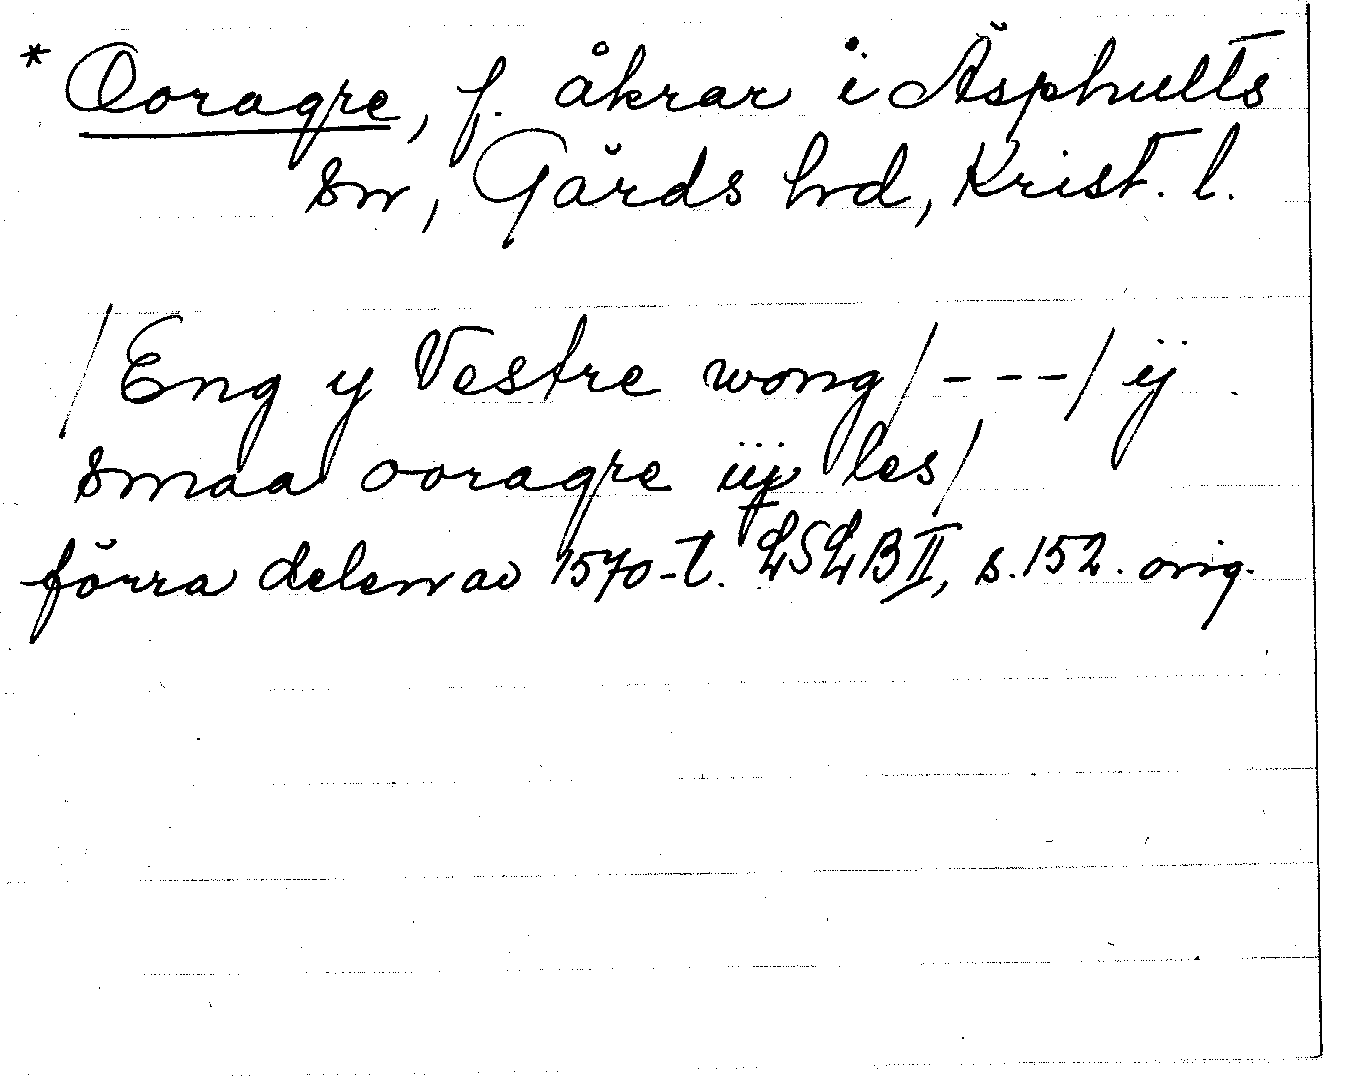 * Ooragre, f. åkrar i Äsphults
sn, Gärds hd, Krist. l.
/Eng y Vestre wong/ - - - / ij
smaa ooragre iij les/
förra delen av 1570-t. LSLB II, s. 152. orig.